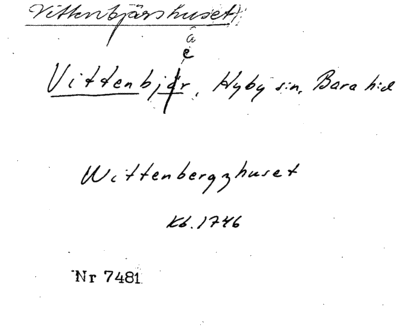 Vittenbjärshuset
a
e
Vittenbjär, Hyby sn, Bara hd
Wittenbergzhuset
Kb. 1746
Nr 7481